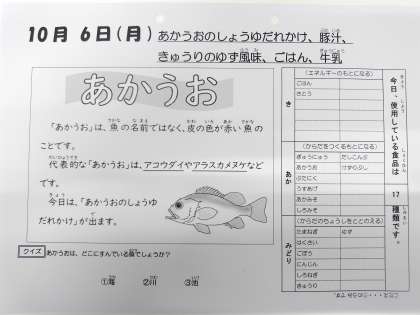 10月 6日(月) あかうおのしょうゆだれかけ、豚汁、
きゅうりのゆず風味、ごはん、牛乳
あかうお
「あかうお」は、魚の名前ではなく、皮の色が赤い魚の
ことです。
代表的な「あかうお」は、アコウダイやアラスカメヌケなど
です。
今日は、「あかうおのしょうゆ
だれかけ」が出ます。
クイズ あかうおは、どこにすんでいる魚でしょうか?
①海 ②川 ③池
き
(エネルギーのもとになる)
ごはん
さとう
あか
(からだをつくるもとになる)
ぎゅうにゅう だしこんぶ
あかうお けずりぶし
ぶたにく
うすあげ
あかみそ
しろみそ
みどり
(からだのちょうしをととのえる)
たまねぎ ゆず
はくさい
ごぼう
にんじん
しろねぎ
きゅうり
今日、使用している食品は
17
種類です。